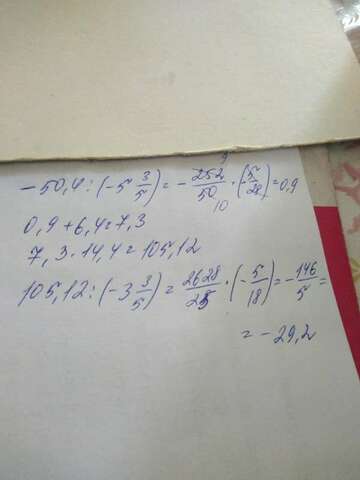 -50,4:(-5 3/5)= - 252/50 · (5/28)=0,9
9
10
0,9+6,4=7,3
7,3·14,4=105,12
105,12:(-3 3/5)= 2628/25 · (-5/18)= -146/5 =
= -29,2